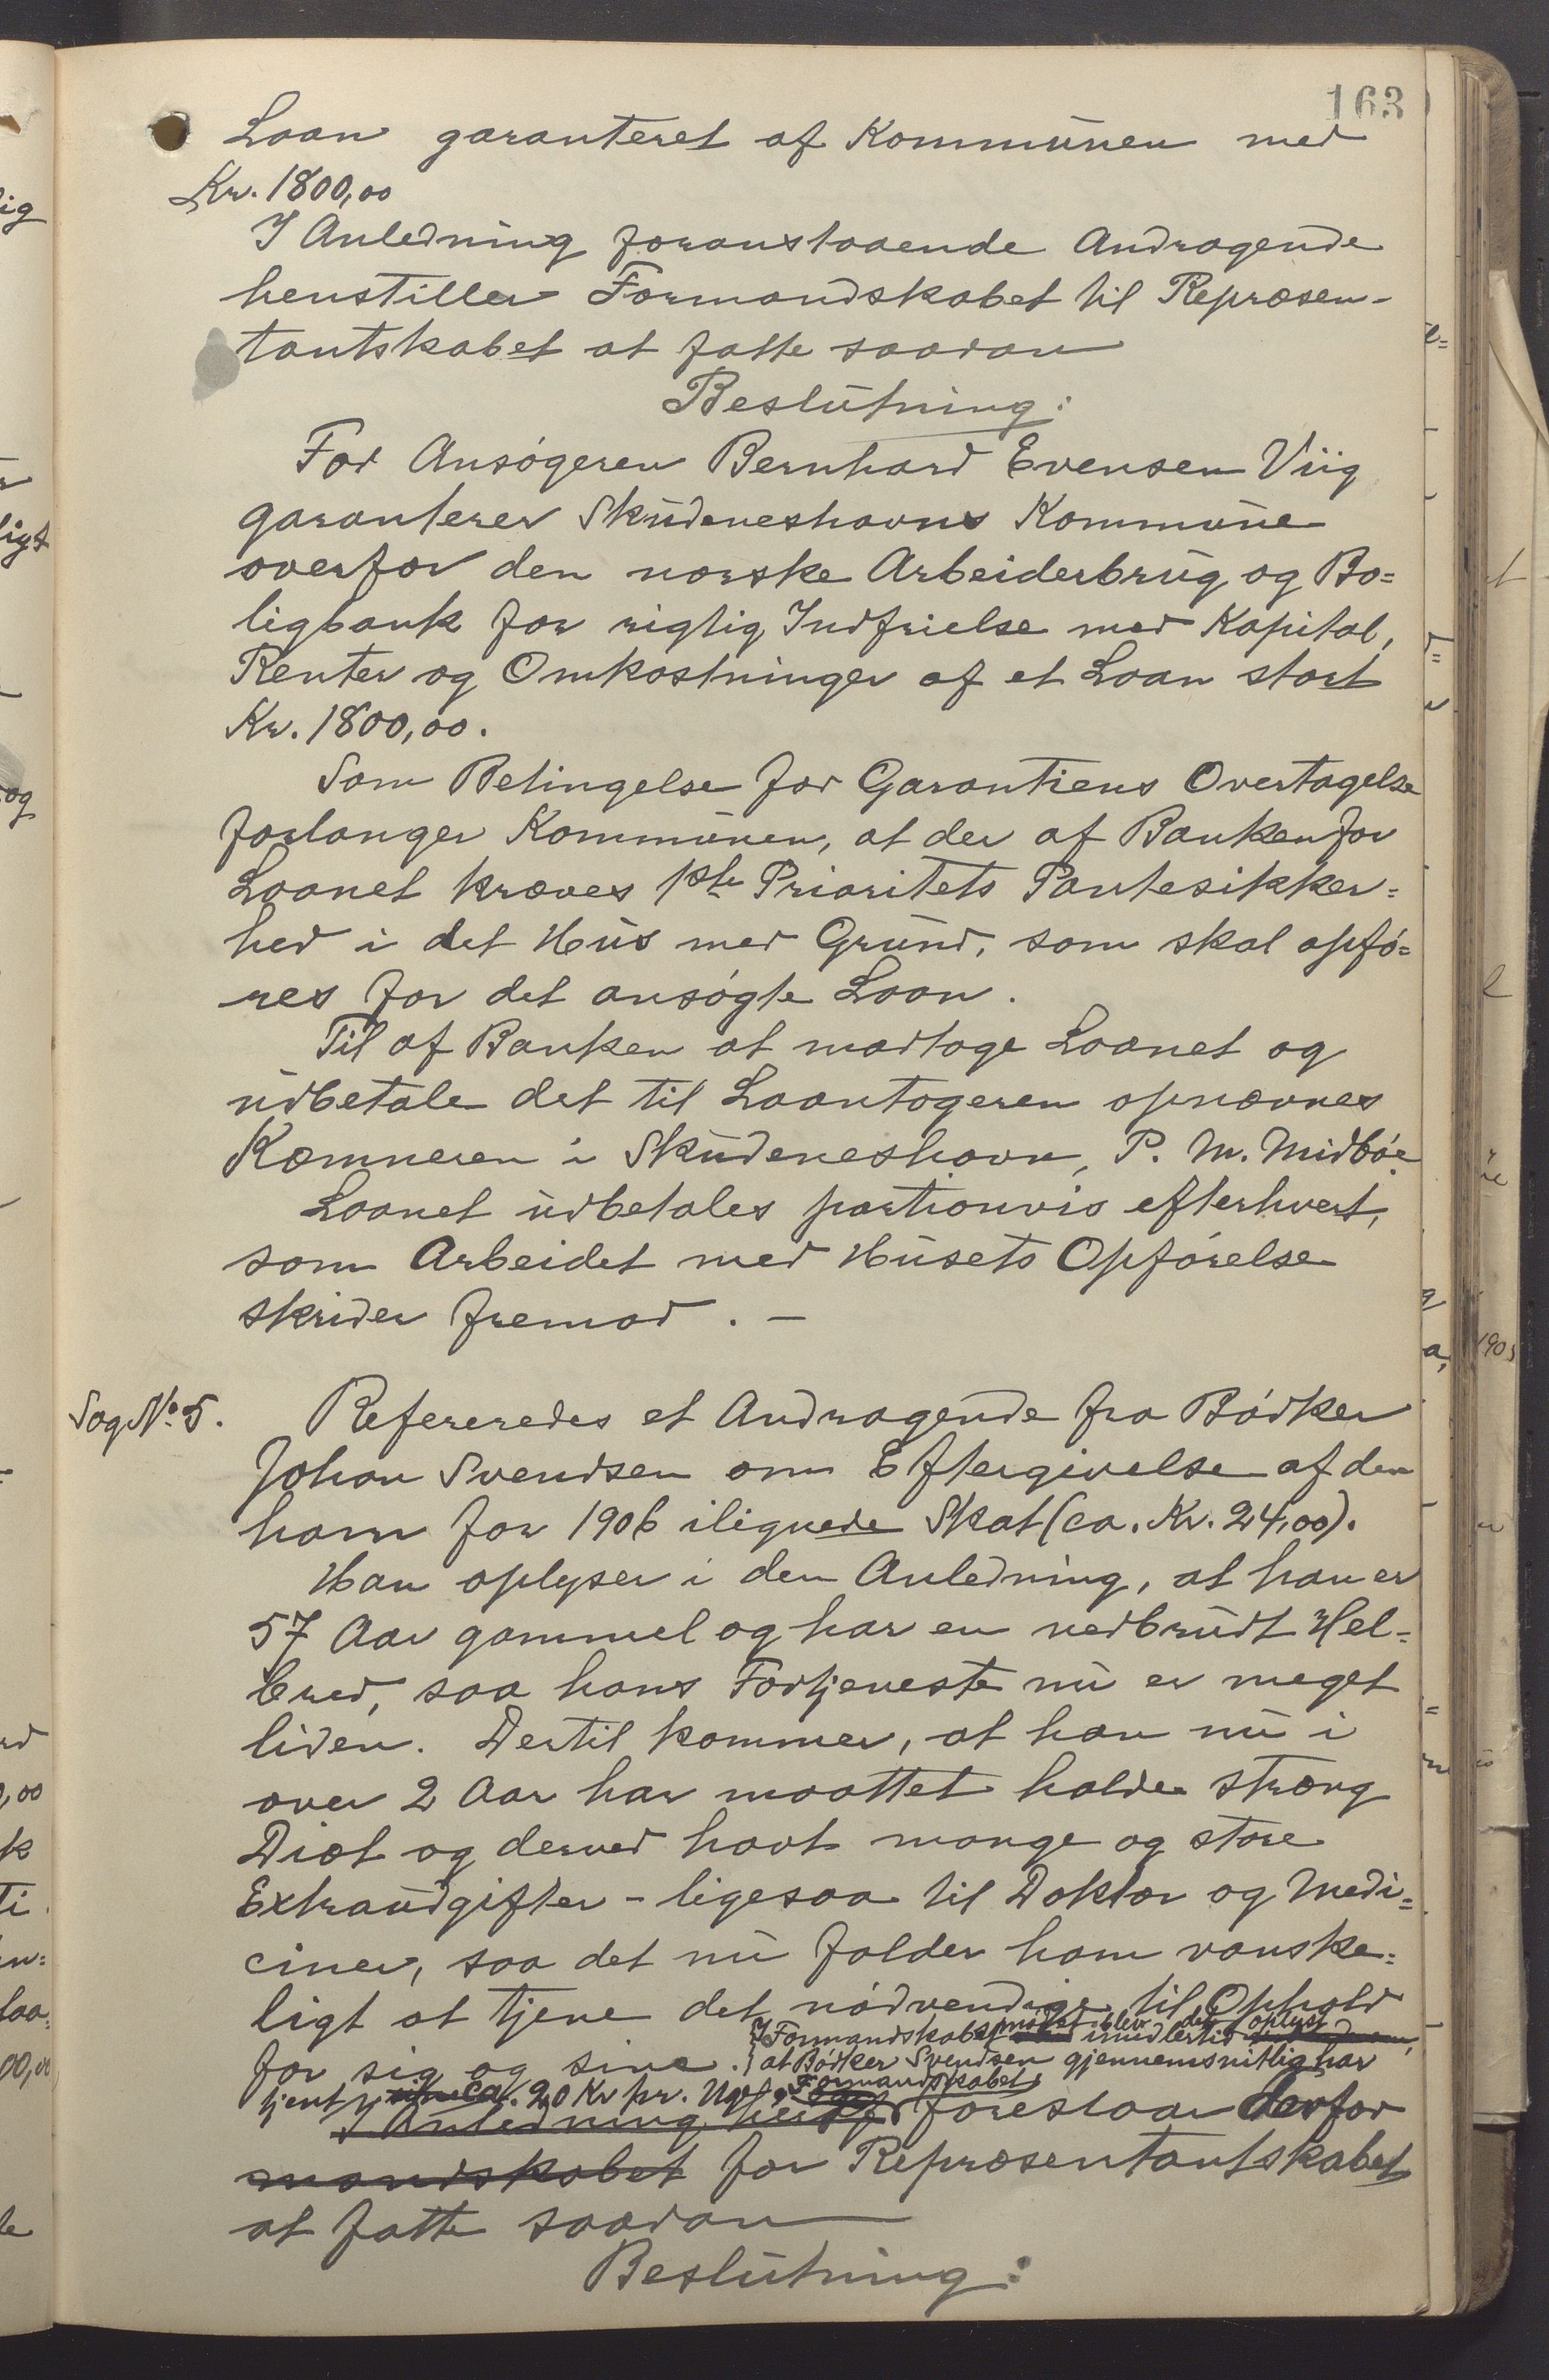 163
Laan garanteret af Kommunen med
Kr. 1800,00
I Anledning foranstaaende Andragende
henstiller Formandskabet til Repræsen-
tantskabet at fatte saadan
Beslutning:
For Ansøgeren Bernhard Evensen Viig
garanterer Skudeneshavns Kommune
overfor den norske Arbeiderbrug og Bo=
ligbank for rigtig Indfrielse med Kapital,
Renter og Omkostninger af et Laan stort
Kr. 1800,00.
Som Betingelse for Garantiens Overtagelse
forlanger Kommunen, at der af Banken for
Laanet kræves 1ste Prioritets Pantesikker=
hed i det Hus med Grund, som skal opfø=
res for det ansøgte Laan.
Til af Banken at modtage Laanet og
udbetale det til Laantageren opnævnes
Kæmneren i Skudeneshavn, P. M. Midbøe.
Laanet udbetales partionvis efterhvert,
som Arbeidet med Husets Opførelse
skrider fremad. -
Sag No. 5. Refereredes et Andragende fra Bødker
Johan Svendsen om Eftergivelse af den
ham for 1906 ilignede Skat (ca. Kr. 24,00).
Han oplyser i den Anledning, at han er
57 Aar gammel og har en nedbrudt Hel=
bred, saa hans Fortjeneste nu er meget
liden. Dertil kommer, at han nu i
over 2 Aar har maattet holde stræng
Diæt og derved havt mange og store
Extraudgifter - ligesaa til Doktor og Medi=
ciner, saa det nu falder ham vanske=
ligt at tjene det nødvendige til Ophold
for sig og sine. I Formandskabsmødet blev det imidlertid oplyst,
at Bødker Svendsen gjennemsnitlig har
tjent ca. 20 Kr pr. Uge. Formandskabet
I Anledning heraf foreslaar derfor
mandskabet for Repræsentantskabet
at fatte saadan
Beslutning: